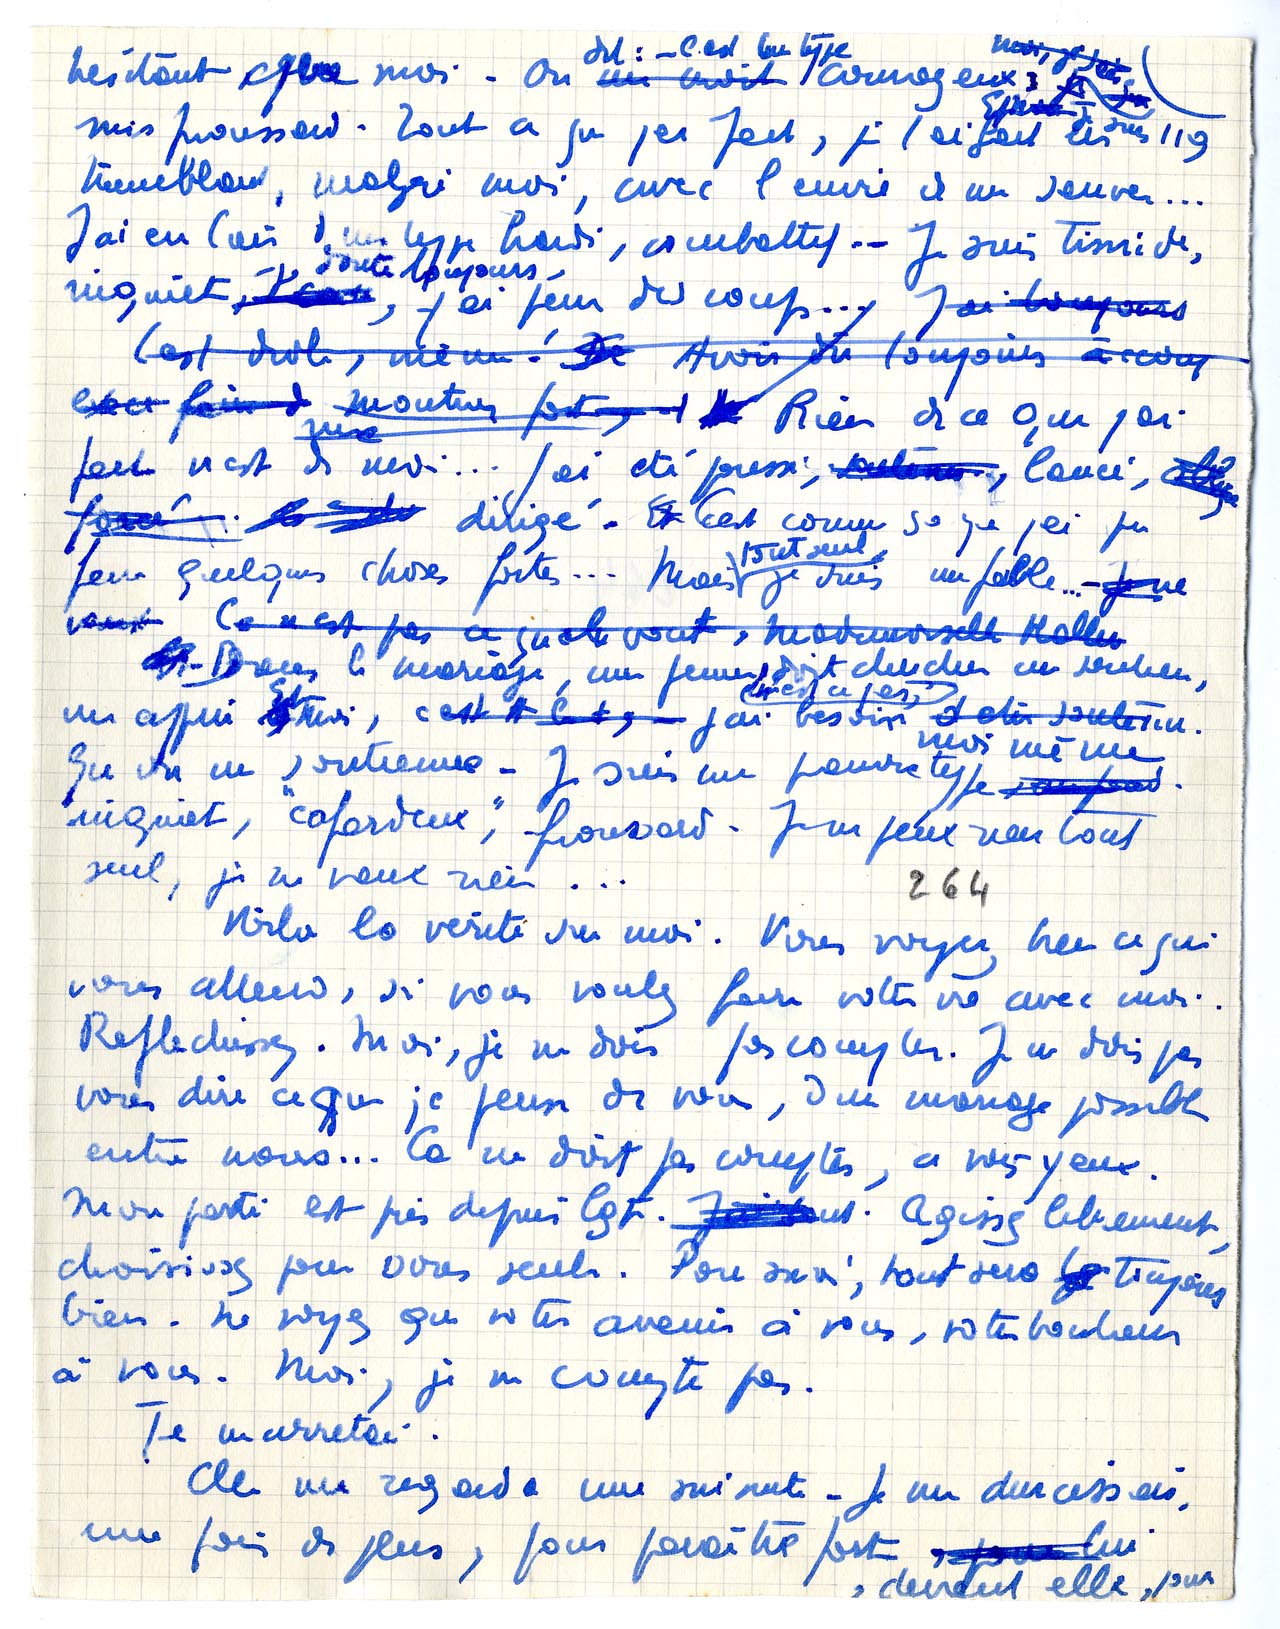 hésitant que moi - On dit : - C'est un type courageux,
suis froussard. Tout ce que j'ai fait, je l'ai fait en 119
tremblant, malgré moi, avec l'envie de me sauver...
J'ai eu l'air d'un type hardi, combattif... Je suis timide,
inquiet, doute toujours, j'ai peur des coups... J'ai toujours
C'est drôle, même ! Avoir dû toujours
montrer fort, Rien de ce que j'ai
fait n'est de moi... J'ai été pressé, soutenu, lancé, obligé
forcé dirigé. C'est comme ça que j'ai pu
faire quelques choses fortes... Mais tout seul, je suis un faible... - Je ne
veux Ce n'est pas ce qu'elle veut, Mademoiselle
- Dans le mariage, une femme doit chercher un soutien,
un appui Et moi, c'est j'ai besoin d'être soutenu.
Qu'on me soutienne - Je suis un pauvre type moi même
inquiet, "cafardeux", froussard. Je ne peux rien tout
seul, je ne vaux rien ...
264
Voilà la vérité sur moi. Vous voyez bien ce qui
vous attend, si vous voulez faire votre vie avec moi.
Reflechissez. Moi, je ne dois pas compter. Je ne dois pas
vous dire ce que je pense de vous, d'un mariage possible
entre nous... Ca ne doit pas compter, à vos yeux.
Mon parti est pris depuis lgt. J'ai tout. Agissez librement,
choisissez pour vous seule. Pour moi, tout sera toujours
bien. Ne voyez que votre avenir à vous, votre bonheur
à vous. Moi, je ne compte pas.
Je m'arretai.
Elle me regarda une minute - Je me durcissais,
une fois de plus, pour paraître fort lui
, devant elle, pour